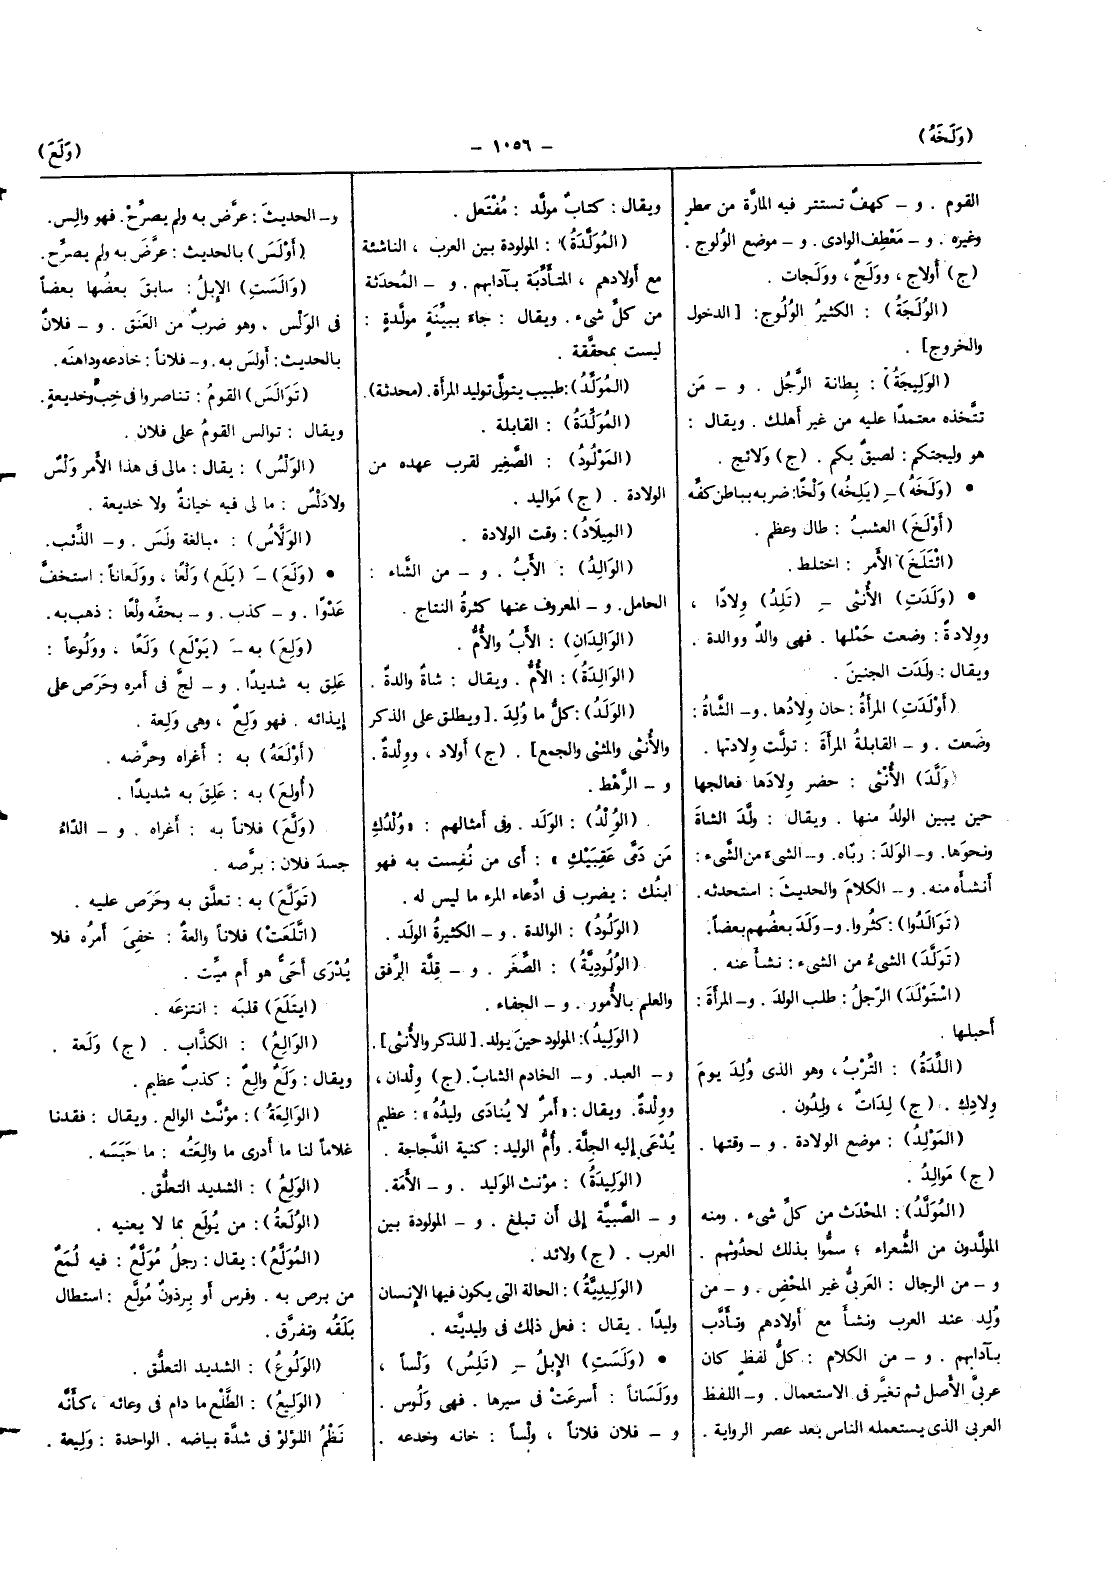 (وَلَخَهُ)
– ١٠٥٦ –
(وَلَعَ)
القوم . و – كهفٌ تستتر فيه المارّة من مطر
وغيره . و – مَعْطِف الوادى . و – موضع الوُلوج .
(ج) أَولاج ، ووَلَجٌ ، ووَلَجات .
(الوُلَجَةُ) : الكثيرُ الوُلُوج: [الدخول
والخروج] .
(الوَلِيجَةُ) : بِطانة الرَّجُل . و – مَن
تتَّخذه معتمدًا عليه من غير أهلك . ويقال :
هو وليجتكم : لصيقٌ بكم . (ج) وَلائج .
• (وَلَخَهُ) –ِ (يَلِخُه) وَلْخًا: ضربه بباطن كفَّه
(أَوْلَخَ) العشبُ : طال وعظم .
(ائْتَلَخَ) الأَمر : اختلط .
• (وَلَدَتِ) الأُنثى –ِ (تَلِدُ) وِلادًا ،
ووِلادةً : وضعت حَمْلها . فهى والدٌ ووالدة .
ويقال : ولَدَت الجنينَ .
(أَوْلَدَتِ) المرأَةُ : حان وِلادُها . و– الشَّاةُ :
وضَعت . و – القابلةُ المرأَةَ : تولَّت وِلادتها .
(وَلَّدَ) الأُنْثى : حضر وِلادَها فعالجها
حين يبين الولدُ منها . ويقال : ولَّدَ الشاةَ
ونحوَها. و– الولَدَ : ربّاه. و– الشىءَ من الشَّىءِ :
أَنشأَه منه . و – الكلامَ والحديثَ : استحدثه .
(تَوَالَدُوا) : كثُروا. و– وَلَدَ بعضُهم بعضاً.
(تَوَلَّدَ) الشىءُ من الشىءِ : نشأَ عنه .
(اسْتَوْلَدَ) الرّجلُ : طلب الولدَ . و– المرأَةَ :
أَحبلها .
(اللِّدَةُ) : التِّرْبُ ، وهو الذى وُلِدَ يومَ
وِلادِك . (ج) لِدَاتٌ ، ولِدُون .
(المَوْلِدُ) : موضع الولادة . و – وقتها .
(ج) مَوالِدُ .
(المُوَلَّدُ) : المحْدَث من كلِّ شىء . ومنه
المولَّدون من الشُّعراء ؛ سمُّوا بذلك لحدُوثهم .
و – من الرجال : العَربىُّ غير المحْضِ . و – من
وُلِد عند العرب ونشأَ مع أَولادهم وتأَدَّب
بآدابهم . و – من الكلام : كلُّ لفظٍ كان
عربىَّ الأَصل ثم تغيَّر فى الاستعمال . و– اللفظ
العربى الذى يستعمله الناس بعد عصر الرواية .
ويقال : كتابٌ مولَّد : مُفْتَعل .
(المُوَلَّدَةُ) : المولودة بين العرب ، الناشئة
مع أَولادهم ، المتأَدِّبَة بآدابهم. و – المُحدَثة
من كلِّ شىء . ويقال : جاءَ ببيِّنَةٍ مولَّدةٍ :
ليست بمحقَّقة .
(المُوَلِّدُ): طبيب يتولَّى توليد المرأة. (محدثة).
(المُوَلِّدَةُ) : القابلة .
(المَوْلُودُ) : الصَّغير لقرب عهده من
الولادة . (ج) مَواليد .
(المِيلَادُ) : وقت الولادة .
(الوَالِدُ) : الأَبُ . و – من الشَّاء :
الحامل. و – المعروف عنها كثرةُ النتاج .
(الوَالِدَانِ) : الأَبُ والأُمُّ .
(الوَالِدَةُ) : الأُمُّ . ويقال : شاةٌ والدةٌ .
(الوَلَدُ) : كلُّ ما وُلِدَ . [ويطلق على الذكر
والأُنثى والمثنى والجمع] . (ج) أَولاد ، ووِلْدةٌ .
و – الرَّهْط .
(الوُلْدُ) : الوَلَد . وفى أَمثالهم : «وُلْدُكِ
مَن دَمَّى عَقِبَيْكِ» : أَى من نُفِست به فهو
ابنُك : يضرب فى ادِّعاء المرء ما ليس له .
(الوَلُودُ) : الوالدة . و – الكثيرةُ الولَد .
(الوُلُودِيَّةُ) : الصِّغَر . و – قِلَّة الرِّفق
والعلم بالأُمور . و – الجفاء .
(الوَلِيدُ): المولود حين يولد. [للذكر والأُنثى].
و – العبد. و – الخادم الشابّ. (ج) وِلْدان ،
ووِلْدةٌ. ويقال: «أَمرٌ لا يُنادَى وليدُه» : عظيم
يُدْعَى إليه الجِلَّة. وأُمُّ الوليد : كنية الدَّجاجة .
(الوَلِيدَةُ) : مؤنث الوَليد . و – الأَمَة .
و – الصَّبيَّة إلى أَن تبلغ . و – المولودة بين
العرب . (ج) ولائد .
(الوَلِيدِيَّةُ) : الحالة التى يكون فيها الإنسان
وليدًا . يقال : فعل ذلك فى وليديَّته .
• (وَلَسَتِ) الإبلُ –ِ (تَلِسُ) وَلْساً ،
ووَلَسَاناً : أَسرعَتْ فى سيرها . فهى وَلُوس .
و – فلان فلاناً ، ولْساً : خانه وخدعه .
و– الحديثَ : عرَّض به ولم يصرِّحْ. فهو والِس.
(أَوْلَسَ) بالحديث : عرَّضَ به ولم يصرِّح.
(وَالَسَتِ) الإبلُ : سابقَ بعضُها بعضاً
فى الوَلْس ، وهو ضربٌ من العَنَق . و – فلانٌ
بالحديث : أَولَس به. و– فلاناً : خادعه وداهنَه.
(تَوَالَسَ) القومُ : تناصروا فى خِبٍّ وخديعةٍ.
ويقال : توالس القومُ على فلان .
(الوَلْسُ) : يقال : مالى فى هذا الأَمر وَلْسٌ
ولادَلْسٌ : ما لى فيه خيانةٌ ولا خديعة .
(الوَلَّاسُ) : مبالغة ولَسَ . و– الذِّئب.
• (وَلَعَ) –َ (يَلَع) وَلْعًا ، ووَلَعاناً : استخفَّ
عَدْوًا . و – كذب . و – بحقِّه ولْعًا : ذهب به.
(وَلِعَ) به –َ (يَوْلَع) وَلَعًا ، ووَلُوعاً :
عَلِق به شديدًا . و – لجَّ فى أَمره وحَرَص على
إيذائه . فهو وَلِعٌ ، وهى وَلِعة .
(أَوْلَعَهُ) به : أَغراه وحرَّضه .
(أُولِعَ) به : عَلِقَ به شديدًا .
(وَلَّعَ) فلاناً به : أَغراه . و – الدّاءُ
جسدَ فلان : برَّصه .
(تَوَلَّعَ) به : تعلَّق به وحَرَص عليه .
(اتَّلَعَتْ) فلاناً والعةٌ : خفِىَ أَمرُه فلا
يُدْرَى أَحَىٌّ هو أَم ميِّت .
(ايتَلَعَ) قلبَه : انتزعَه .
(الوَالِعُ) : الكذَّاب . (ج) وَلَعَة .
ويقال : وَلَعٌ والِعٌ : كذبٌ عظيم .
(الوَالِعَةُ) : مؤنَّث الوالع . ويقال : فقدنا
غلاماً لنا ما أَدرى ما والِعَتُه : ما حَبَسَه .
(الوَلِعُ) : الشديد التعلُّق .
(الوُلَعَةُ) : من يُولَع بما لا يعنيه .
(المُوَلَّعُ) : يقال : رجلٌ مُوَلَّعٌ : فيه لُمَعٌ
من برص به . وفرس أَو بِرذونٌ مُولَّع : استطال
بَلَقُه وتفرَّق .
(الوَلُوعُ) : الشديد التعلُّق .
(الوَلِيعُ) : الطَّلْع ما دام فى وعائه ، كأَنَّه
نَظْمُ اللؤلؤ فى شدَّة بياضه . الواحدة : وَلِيعة .